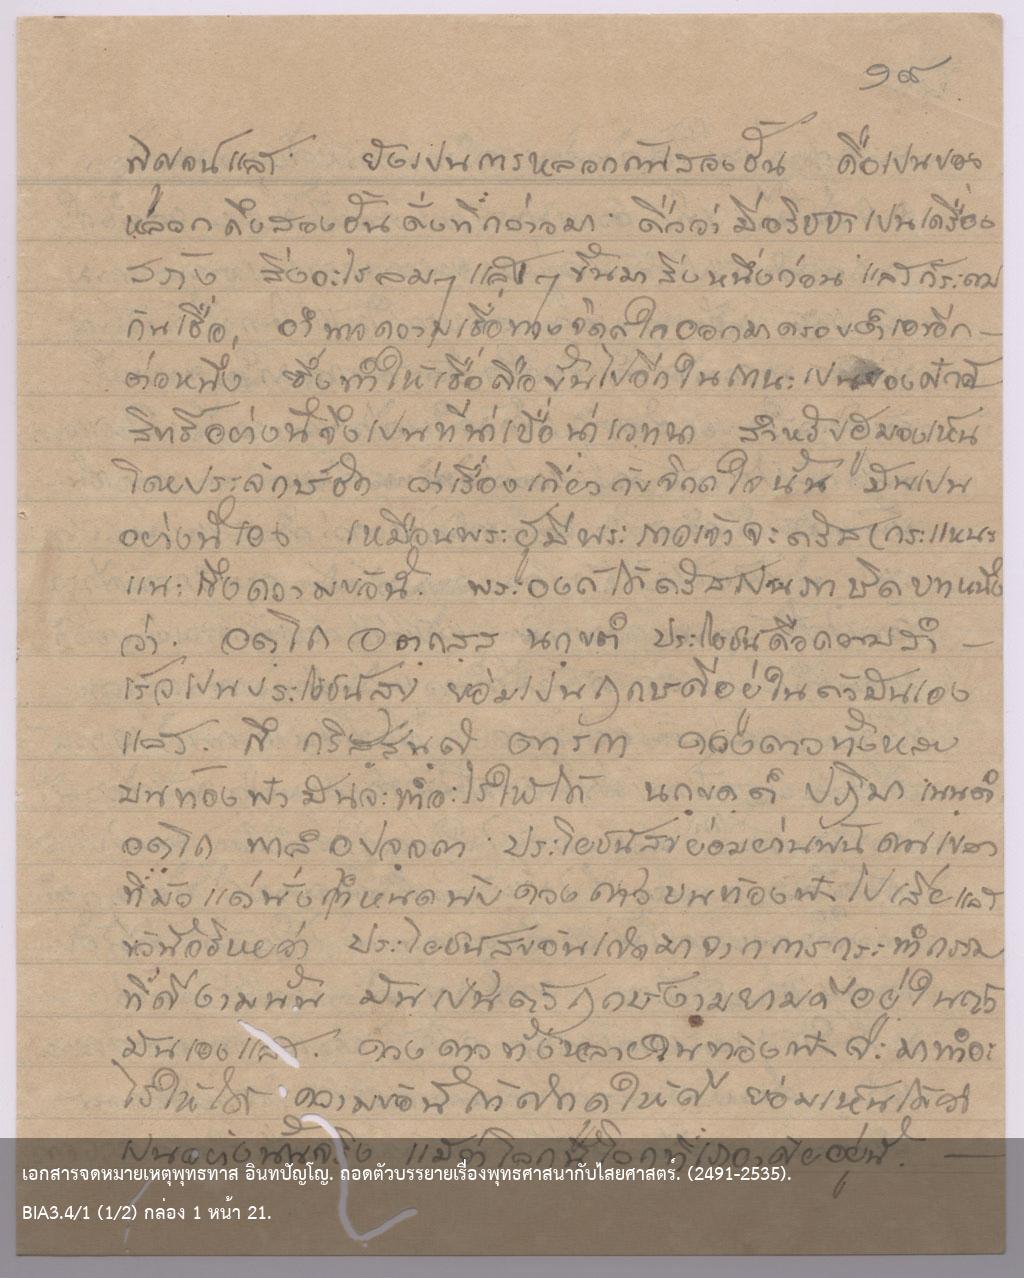 ๑๙
พิศจน์แล้ว ยังเป็นการหลอกกันสองชั้น คือเป็นของ
หลอกถึงสองชั้นดั่งที่กล่าวมา คือว่า มีอวิชชาเป็นเครื่อง
สร้าง สิ่งอะไรลมๆ แล้งๆ ขึ้นมาสิ่งหนึ่งก่อน แล้วก็ระดม
กันเชื่อ, อำนาจความเชื่อทางจิตต์ใจออกมาครอบงำเอาอีก
ต่อหนึ่ง ซึ่งทำให้เชื่อถือขึ้นไปอีกในฐานะเป็นของศักดิ์
สิทธิ์อย่างนี้จึงเป็นที่น่าเบื่อน่าเวทนา สำหรับผู้มองเห็น
โดยประจักษ์ชัด ว่าเรื่องเกี่ยวกับจิตต์ใจนั้น มันเป็น
อย่างนี้เอง เหมือนพระผู้มีพระภาคเจ้าจะตรัสกระแหนะ
แหนะถึงความข้อนี้. พระองค์ได้ตรัสเป็นภาษิตบทหนึ่ง
ว่า. อตฺโถ อตฺถสฺส นกฺขตฺตํ ประโยชน์คือความสำ
เร็จเป็นประโยชน์สุข ย่อมเป็นฤกษ์ดีอยู่ในตัวมันเอง
แล้ว. กึ กริสฺสนฺติ ตารกา ดวงดาวทั้งหลาย
บนท้องฟ้ามันจะทำอะไรให้ได้ นกฺขตฺตํ ปฏิมาเนนฺตํ
อตฺโถ พาลํ อุปจฺจคา ประโยชน์สุขย่อมผ่านพ้นคนเขลา
ที่มัวแต่นั่งกำหนดนับดวงดาวบนท้องฟ้าไปเสียแล้ว
ข้อนี้อธิบายว่า ประโยชน์สุขอันเกิดมาจากการกระทำกรรม
ที่ดีงามนั้น มันเป็นตัวฤกษ์งามยามดีอยู่ในตัว
มันเองแล้ว. ดวงดาวทั้งหลายในท้องฟ้าจะมาทำอะ
ไรให้ได้ ความข้อนี้ถ้าคิดให้ดี ย่อมเห็นได้ว่า
เป็นอย่างนั้นจริง
เอกสารจดหมายเหตุพุทธทาส อินทปัญโญ. ถอดตัวบรรยายเรื่องพุทธศาสนากับไสยศาสตร์. (2491-2535).
BIA3.4/1 (1/2) กล่อง 1 หน้า 21.